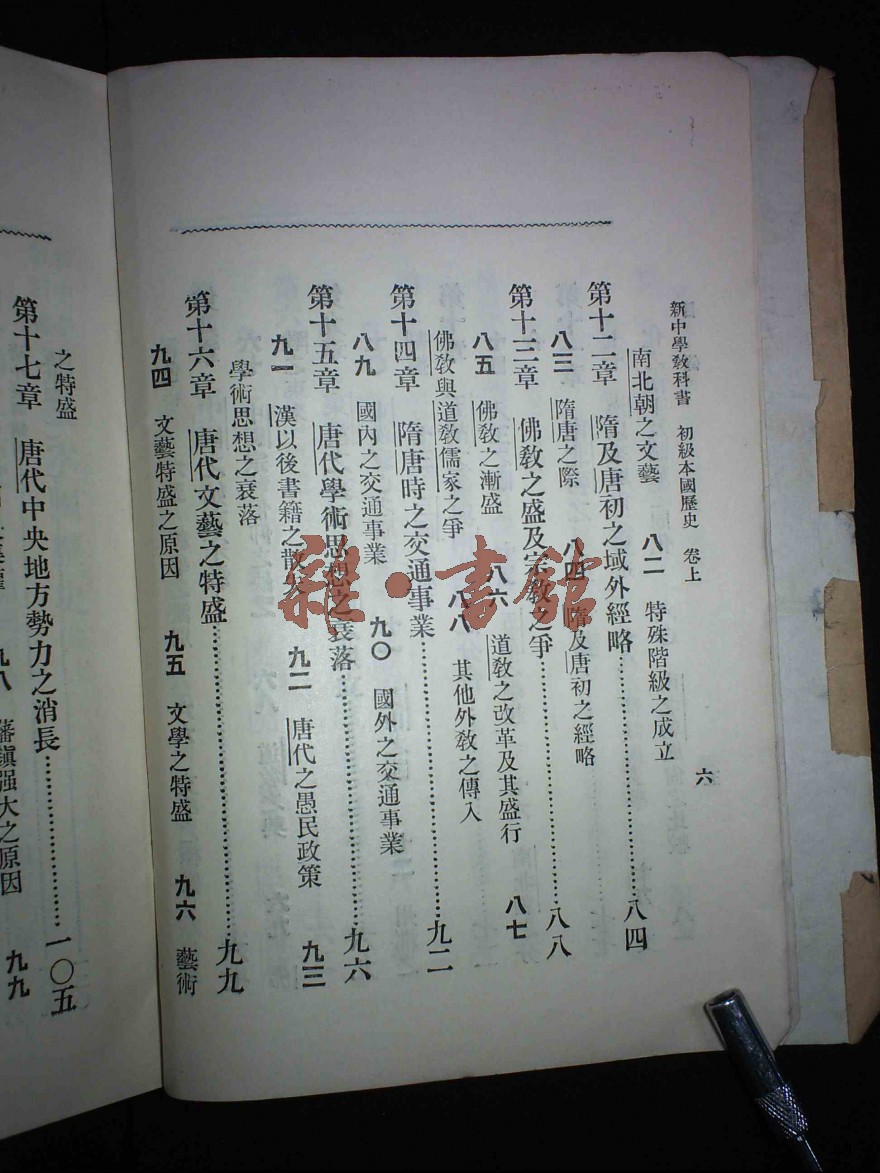 新中學教科書　初級本國歷史　卷上
六
南北朝之文藝　八二　特殊階級之成立
第十二章　隋及唐初之域外經略……八四
八三　隋唐之際　八四　隋及唐初之經略
第十三章　佛教之盛及宗教之爭……八八
八五　佛教之漸盛　八六　道教之改革及其盛行　八七
佛教與道教儒家之爭　八八　其他外教之傳入
第十四章　隋唐時之交通事業……九二
八九　國內之交通事業　九〇　國外之交通事業
第十五章　唐代學術思想之衰落……九六
九一　漢以後書籍之散　九二　唐代之愚民政策　九三
學術思想之衰落
第十六章　唐代文藝之特盛……九九
九四　文藝特盛之原因　九五　文學之特盛　九六　藝術
之特盛
第十七章　唐代中央地方勢力之消長……一〇五
九八　藩鎮强大之原因　九九
雜·書館